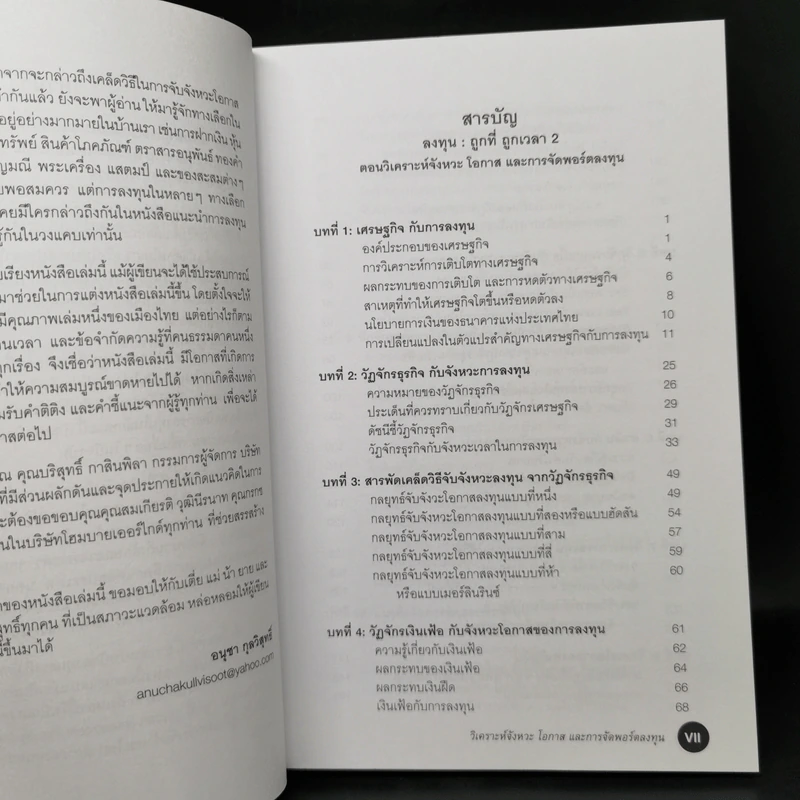 จากจะกล่าวถึงเคล็ดวิธีในการจับจังหวะโอกาส
กันแล้ว ยังจะพาผู้อ่าน ให้มารู้จักทางเลือกใน
อยู่อย่างมากมายในบ้านเรา เช่นการฝากเงิน หุ้น
ทรัพย์ สินค้าโภคภัณฑ์ ตราสารอนุพันธ์ ทองคำ
ญมณี พระเครื่อง แสตมป์ และของสะสมต่างๆ
พอสมควร แต่การลงทุนในหลายๆ ทางเลือก
คยมีใครกล่าวถึงกันในหนังสือแนะนำการลงทุน
รู้กันในวงแคบเท่านั้น
เรียงหนังสือเล่มนี้ แม้ผู้เขียนจะได้ใช้ประสบการณ์
มาช่วยในการแต่งหนังสือเล่มนี้ขึ้น โดยตั้งใจจะให้
มีคุณภาพเล่มหนึ่งของเมืองไทย แต่อย่างไรก็ตาม
านเวลา และข้อจำกัดความรู้ที่คนธรรมดาคนหนึ่ง
ทุกเรื่อง จึงเชื่อว่าหนังสือเล่มนี้ มีโอกาสที่เกิดการ
ำให้ความสมบูรณ์ขาดหายไปได้ หากเกิดสิ่งเหล่า
มรับคำติติง และคำชี้แนะจากผู้รู้ทุกท่าน เพื่อจะได้
าสต่อไป
ณ คุณบริสุทธิ์ กาสินพิลา กรรมการผู้จัดการ บริษัท
ที่มีส่วนผลักดันและจุดประกายให้เกิดแนวคิดในการ
ะต้องขอขอบคุณคุณสมเกียรติ วุฒินีรนาท คุณกรกช
นในบริษัทโฮมบายเออร์ไกด์ทุกท่าน ที่ช่วยสรรสร้าง
ของหนังสือเล่มนี้ ขอมอบให้กับเตี่ย แม่ น้า ยาย และ
ุทธิ์ทุกคน ที่เป็นสภาวะแวดล้อม หล่อหลอมให้ผู้เขียน
ี้ขึ้นมาได้
อนุชา กุลวิสุทธิ์
anuchakullvisoot@yahoo.com
สารบัญ
ลงทุน : ถูกที่ ถูกเวลา 2
ตอนวิเคราะห์จังหวะ โอกาส และการจัดพอร์ตลงทุน
บทที่ 1: เศรษฐกิจ กับการลงทุน 1
องค์ประกอบของเศรษฐกิจ 1
การวิเคราะห์การเติบโตทางเศรษฐกิจ 4
ผลกระทบของการเติบโต และการหดตัวทางเศรษฐกิจ 6
สาเหตุที่ทำให้เศรษฐกิจโตขึ้นหรือหดตัวลง 8
นโยบายการเงินของธนาคารแห่งประเทศไทย 10
การเปลี่ยนแปลงในตัวแปรสำคัญทางเศรษฐกิจกับการลงทุน 11
บทที่ 2: วัฏจักรธุรกิจ กับจังหวะการลงทุน 25
ความหมายของวัฏจักรธุรกิจ 26
ประเด็นที่ควรทราบเกี่ยวกับวัฏจักรเศรษฐกิจ 29
ดัชนีชี้วัฏจักรธุรกิจ 31
วัฏจักรธุรกิจกับจังหวะเวลาในการลงทุน 33
บทที่ 3: สารพัดเคล็ดวิธีจับจังหวะลงทุน จากวัฏจักรธุรกิจ 49
กลยุทธ์จับจังวะโอกาสลงทุนแบบที่หนึ่ง 49
กลยุทธ์จับจังหวะโอกาสลงทุนแบบที่สองหรือแบบฮัดสัน 54
กลยุทธ์จับจังหวะโอกาสลงทุนแบบที่สาม 57
กลยุทธ์จับจังหวะโอกาสลงทุนแบบที่สี่ 59
กลยุทธ์จับจังหวะโอกาสลงทุนแบบที่ห้า 60
หรือแบบเมอร์ลินรินซ์
บทที่ 4: วัฏจักรเงินเฟ้อ กับจังหวะโอกาสของการลงทุน 61
ความรู้เกี่ยวกับเงินเฟ้อ 62
ผลกระทบของเงินเฟ้อ 64
ผลกระทบเงินฝืด 66
เงินเฟ้อกับการลงทุน 68
วิเคราะห์จังหวะ โอกาส และการจัดพอร์ตลงทุน VII